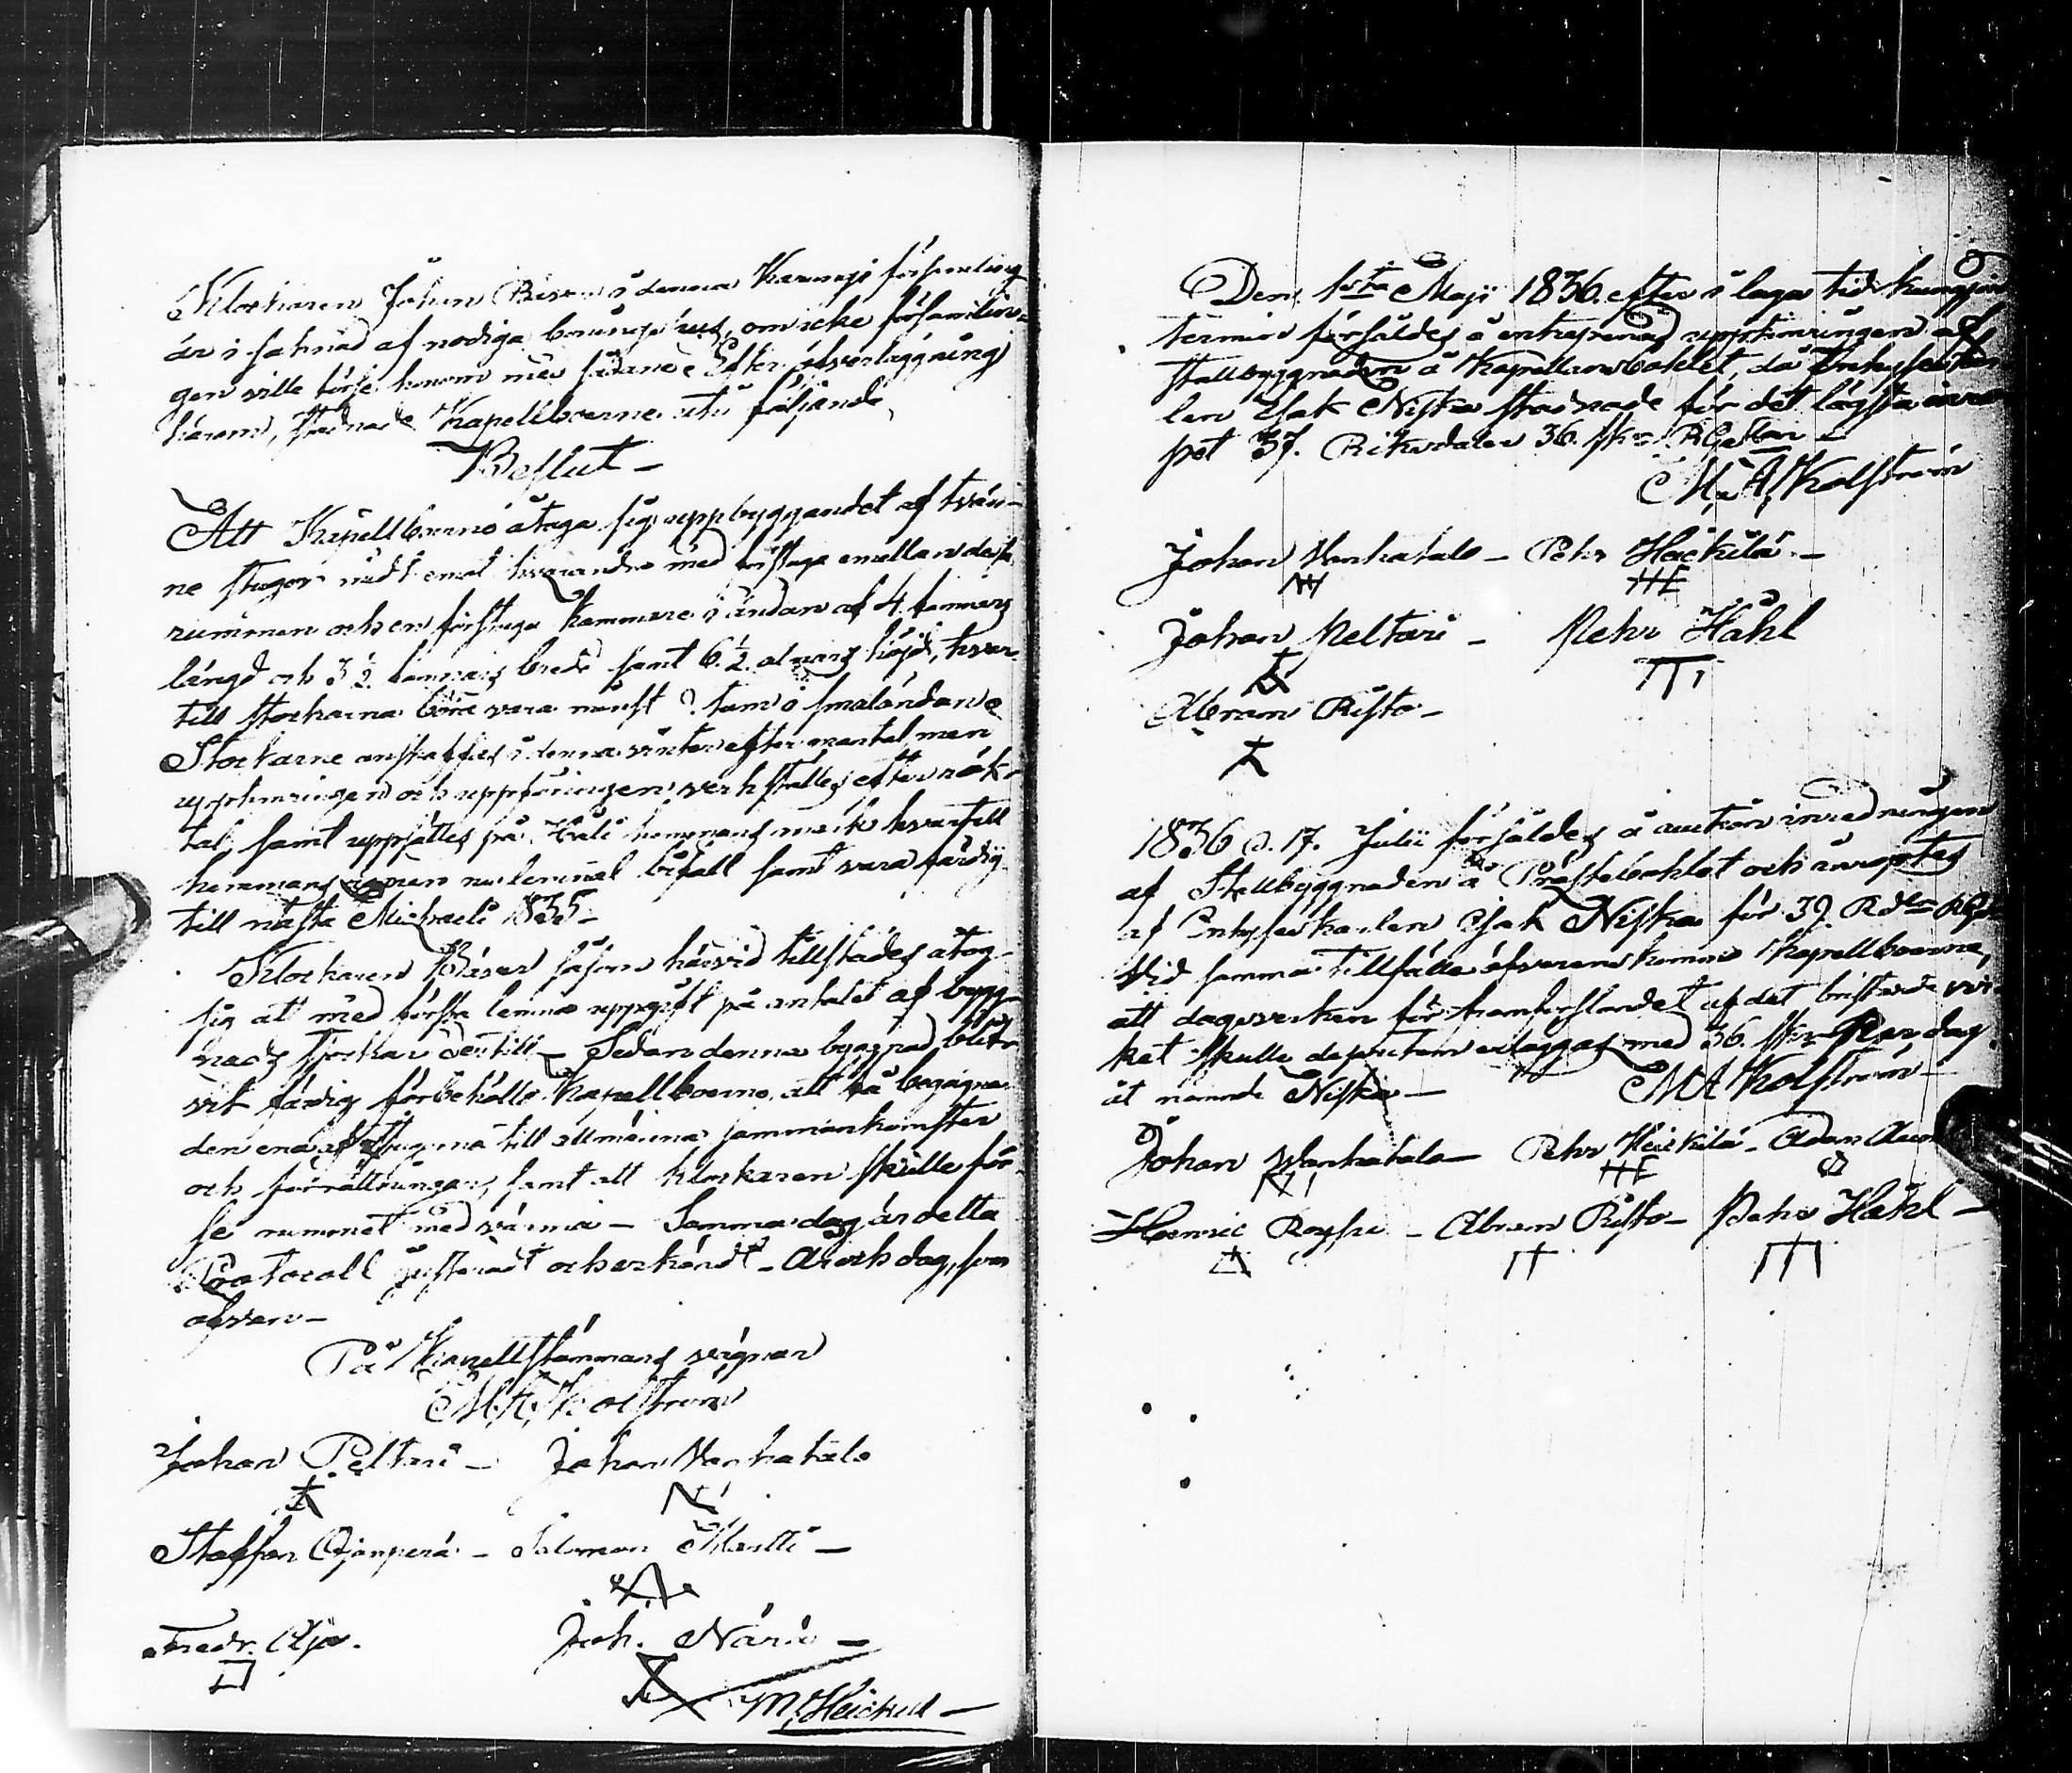 Klockaren Johan Bären i denna Karungi församling
är i saknad af nödiga boningshus, om icke församlin-
gen ville förse honom med sådane. Efter öfverläggning
härom, stadnade Kapellboerne uti följande
Beslut –
Att Kapellboerne åtaga sig uppbyggandet af tvän-
ne stugor midt emot hvarandra med förstuga emellan dessa
rummen och en förstugu kammare i ändan af 4. famnars
längd och 3 ½ famnars bredd samt 6. ½ alnars höjd, hvar-
till stockarna böra vara minst 7. tum i smaländan.
Stockarne anskaffas i denna vinter efter mantal, men
upptimringen och uppföringen verkställes efter rök-
tal, samt uppsättes på hemmans mark hvartill
hemmans egaren nu lemnat bifall samt vara färdig
till nästa Michaeli 1835 –
Klockaren Bären såsom härvid tillstädes åtog
sig att med första lemna uppgift på antalet af bygg-
nads stockar dertill – Sedan denna byggnad blif-
vit färdig förbehöllo Kapellboerne, att få begagna
den ena af stugorna till allmänna sammankomster
och förrättningar, samt att klockaren skulle för-
se rummet med värma – Samma dag är detta
Protocoll justeradt och erkändt – År och dag, som
ofvan –
På Kapellstämmans vägnar
M. A. Kolström
Johan Peltari – Johan Vanhatalo
Staffan Ojanperä – Salomon Martti –
Fredr. Oja. Joh. Närä –
M. Heickel –
Den 1sta Maji 1836. efter i laga tid kungjord
termin försåldes å entreprenad upptimringen af
stallbyggnaden å Kapellansbohlet, då Enkesäten
len Isak Niska stadnade för det lägsta inro
pet 37. Riksdaler 36. sk. RGs
M. A. Kolström
Johan Vanhatalo – Pehr Heickilä –
Johan Peltari – Pehr Håhl
Abram Risto –
1836 d. 17. Julii försåldes å auction inredningen
af Stallbyggnaden å Prästebohlet och inroptes
af Isak Niska för 39. Rd
Vid samma tillfälle öfverenskommo Kapellboerne,
att dagsverken för framforslandet af det bristande vir
ket skulle erläggas med 36. sk. per dag
åt nämnde Niska –
M A Kolström –
Johan Vanhatalo – Pehr Heickilä – Adam
Henric – Abram Risto – Pehr Håhl –